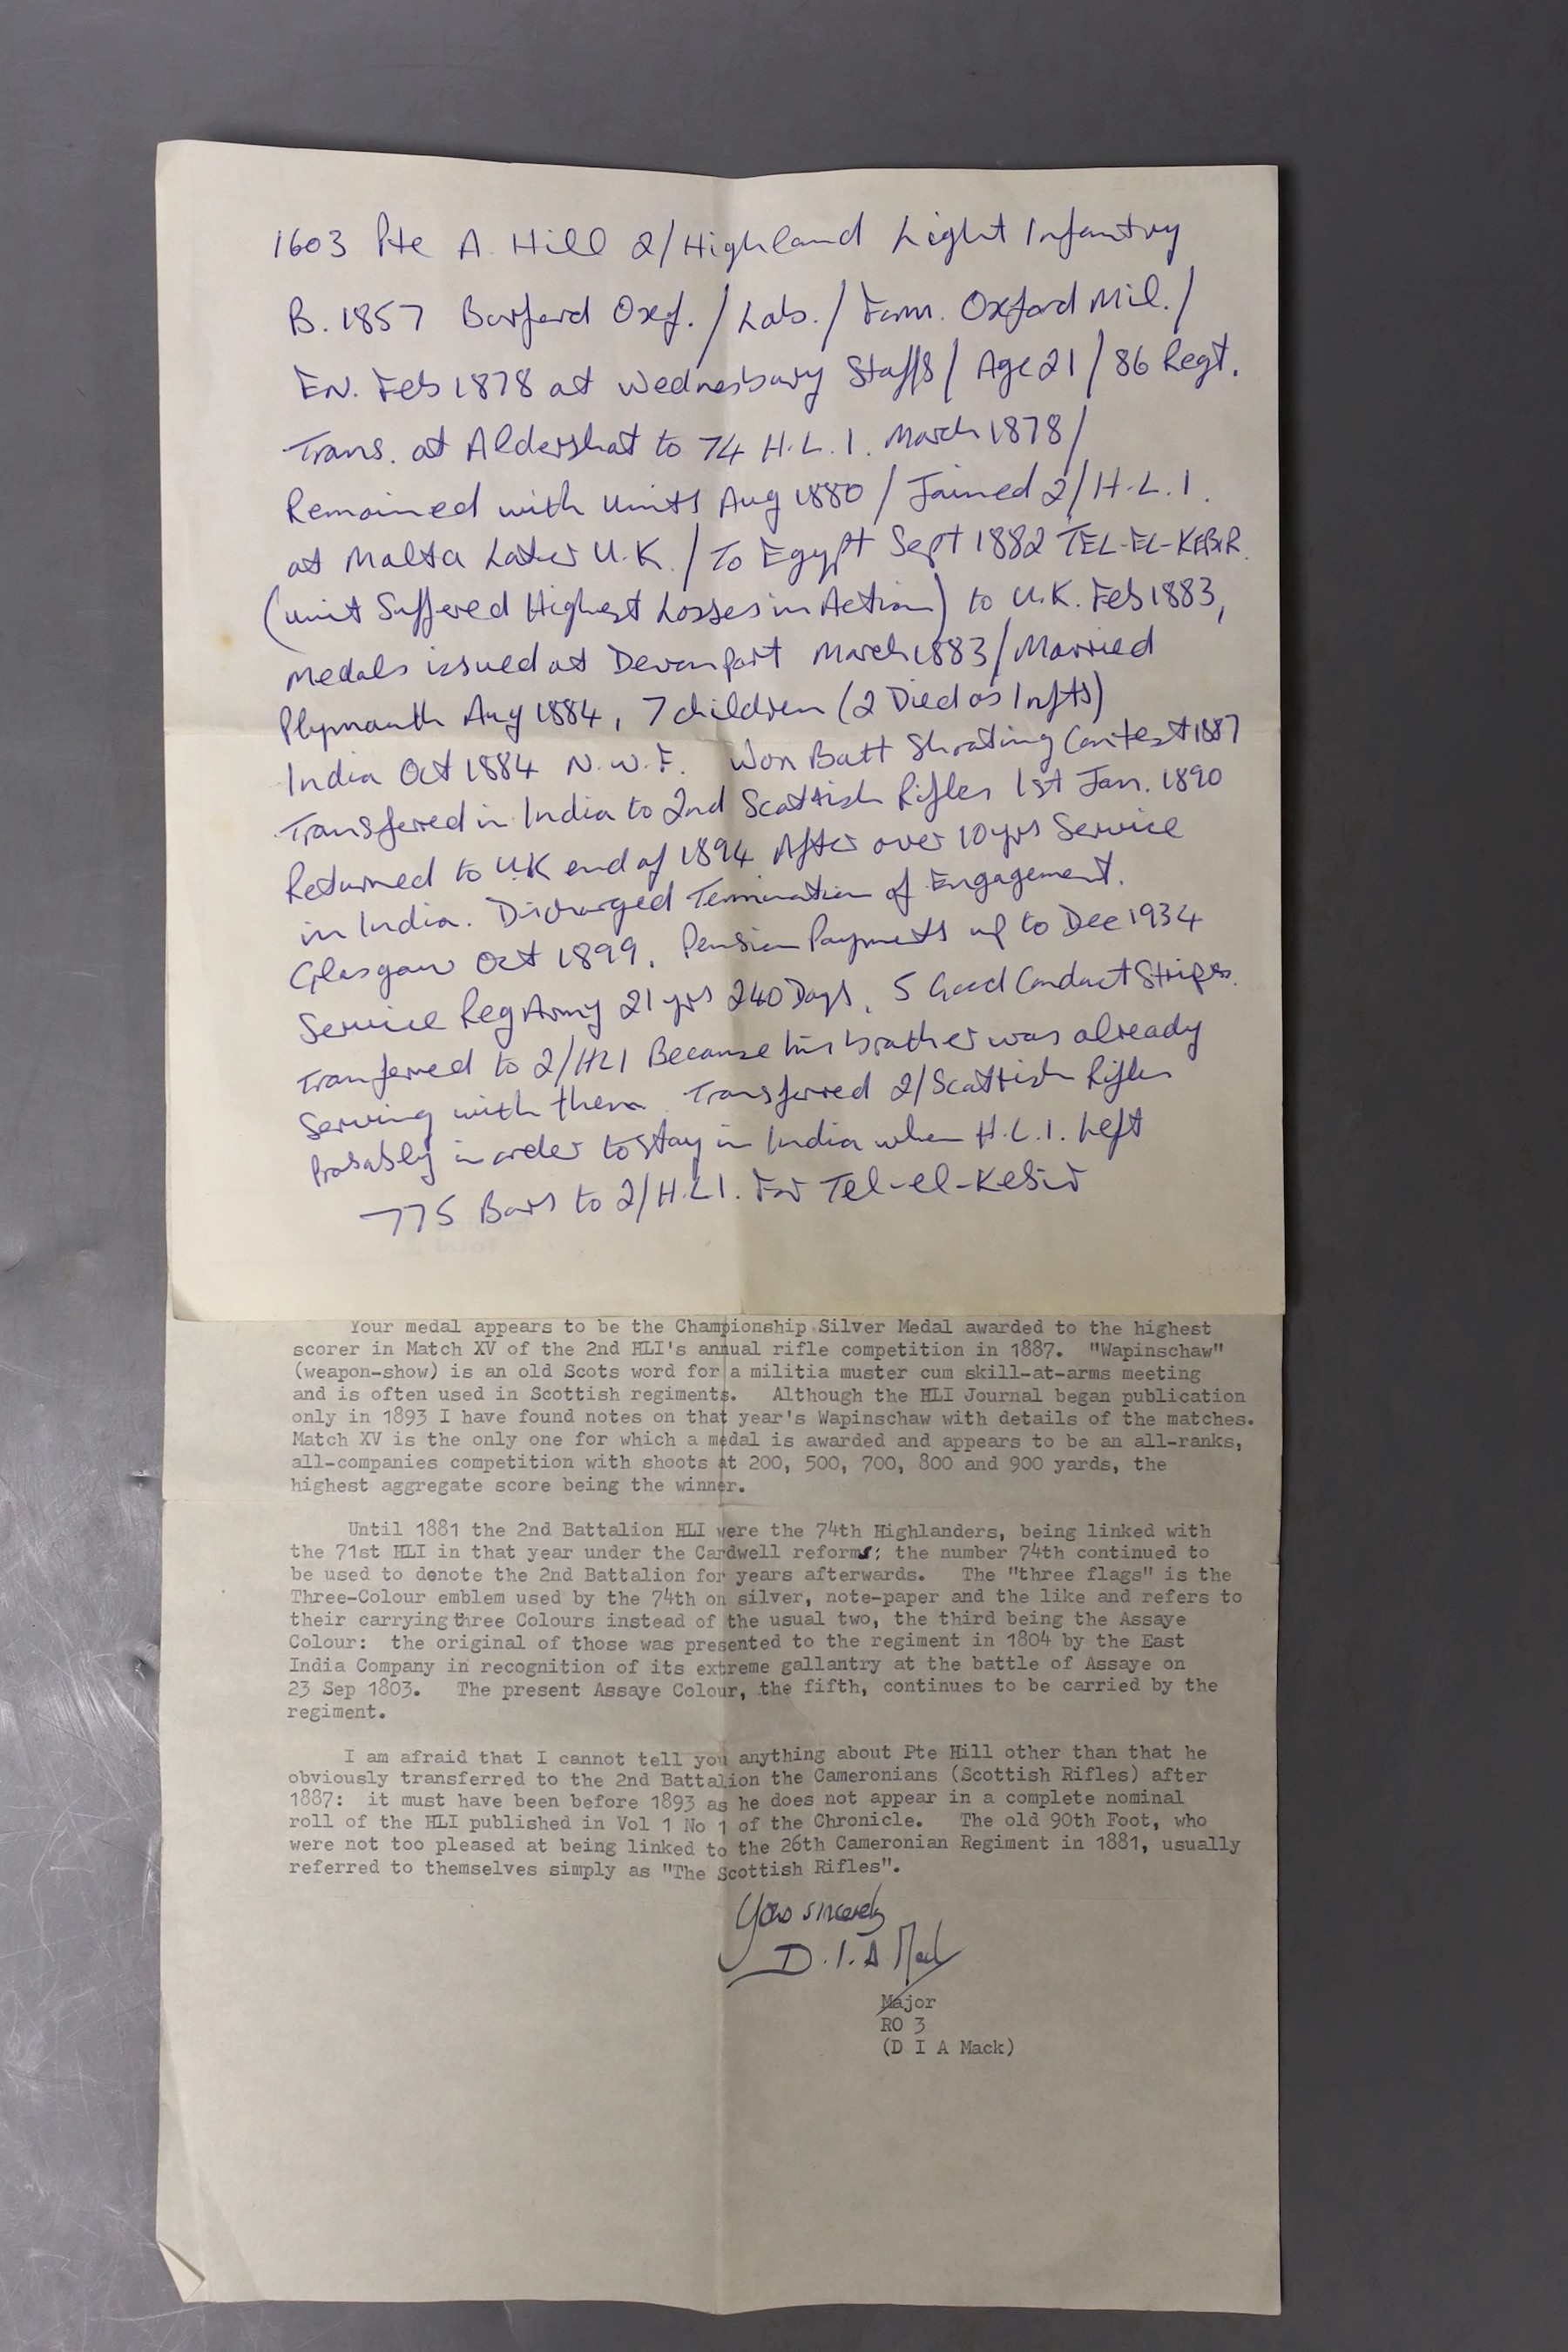 1603 Pte A. Hill 2/Highland Light Infantry
B. 1857 Barford Oxf. / Lab. / Form. Oxford Mil. /
EN. Feb 1878 at Wednesbury Staffs / Age 21 / 86 Regt.
Trans. at Aldershot to 74 H.L.I. March 1878 /
Remained with Units Aug 1880 / Joined 2/H.L.I.
at Malta Later U.K. / To Egypt Sept 1882 TEL-EL-KEBIR.
(Unit Suffered Highest Losses in Action) to U.K. Feb 1883,
Medals issued at Devonport March 1883 / Married
Plymouth Aug 1884, 7 children (2 Died as Infts)
India Oct 1884 N.W.F. Won Batt Shooting Contest 1887
Transferred in India to 2nd Scottish Rifles 1st Jan. 1890
Returned to U.K end of 1894 After over 10 yrs Service
in India. Discharged Termination of Engagement.
Glasgow Oct 1899. Pension Payments up to Dec 1934
Service Reg Army 21 yrs 240 Days, 5 Good Conduct Stripes.
Tranferred to 2/HLI Because his brother was already
Serving with them Transferred 2/Scottish Rifles
Probably in order to stay in India when H.L.I. Left
775 Bars to 2/H.L.I. For Tel-el-Kebir
Your medal appears to be the Championship Silver Medal awarded to the highest
scorer in Match XV of the 2nd HLI's annual rifle competition in 1887. "Wapinschaw"
(weapon-show) is an old Scots word for a militia muster cum skill-at-arms meeting
and is often used in Scottish regiments. Although the HLI Journal began publication
only in 1893 I have found notes on that year's Wapinschaw with details of the matches.
Match XV is the only one for which a medal is awarded and appears to be an all-ranks,
all-companies competition with shoots at 200, 500, 700, 800 and 900 yards, the
highest aggregate score being the winner.
Until 1881 the 2nd Battalion HLI were the 74th Highlanders, being linked with
the 71st HLI in that year under the Cardwell reforms; the number 74th continued to
be used to denote the 2nd Battalion for years afterwards. The "three flags" is the
Three-Colour emblem used by the 74th on silver, note-paper and the like and refers to
their carrying three Colours instead of the usual two, the third being the Assaye
Colour: the original of those was presented to the regiment in 1804 by the East
India Company in recognition of its extreme gallantry at the battle of Assaye on
23 Sep 1803. The present Assaye Colour, the fifth, continues to be carried by the
regiment.
I am afraid that I cannot tell you anything about Pte Hill other than that he
obviously transferred to the 2nd Battalion the Cameronians (Scottish Rifles) after
1887: it must have been before 1893 as he does not appear in a complete nominal
roll of the HLI published in Vol 1 No 1 of the Chronicle. The old 90th Foot, who
were not too pleased at being linked to the 26th Cameronian Regiment in 1881, usually
referred to themselves simply as "The Scottish Rifles".
Yours sincerely
D.I.A Mack
Major
RO 3
(D I A Mack)